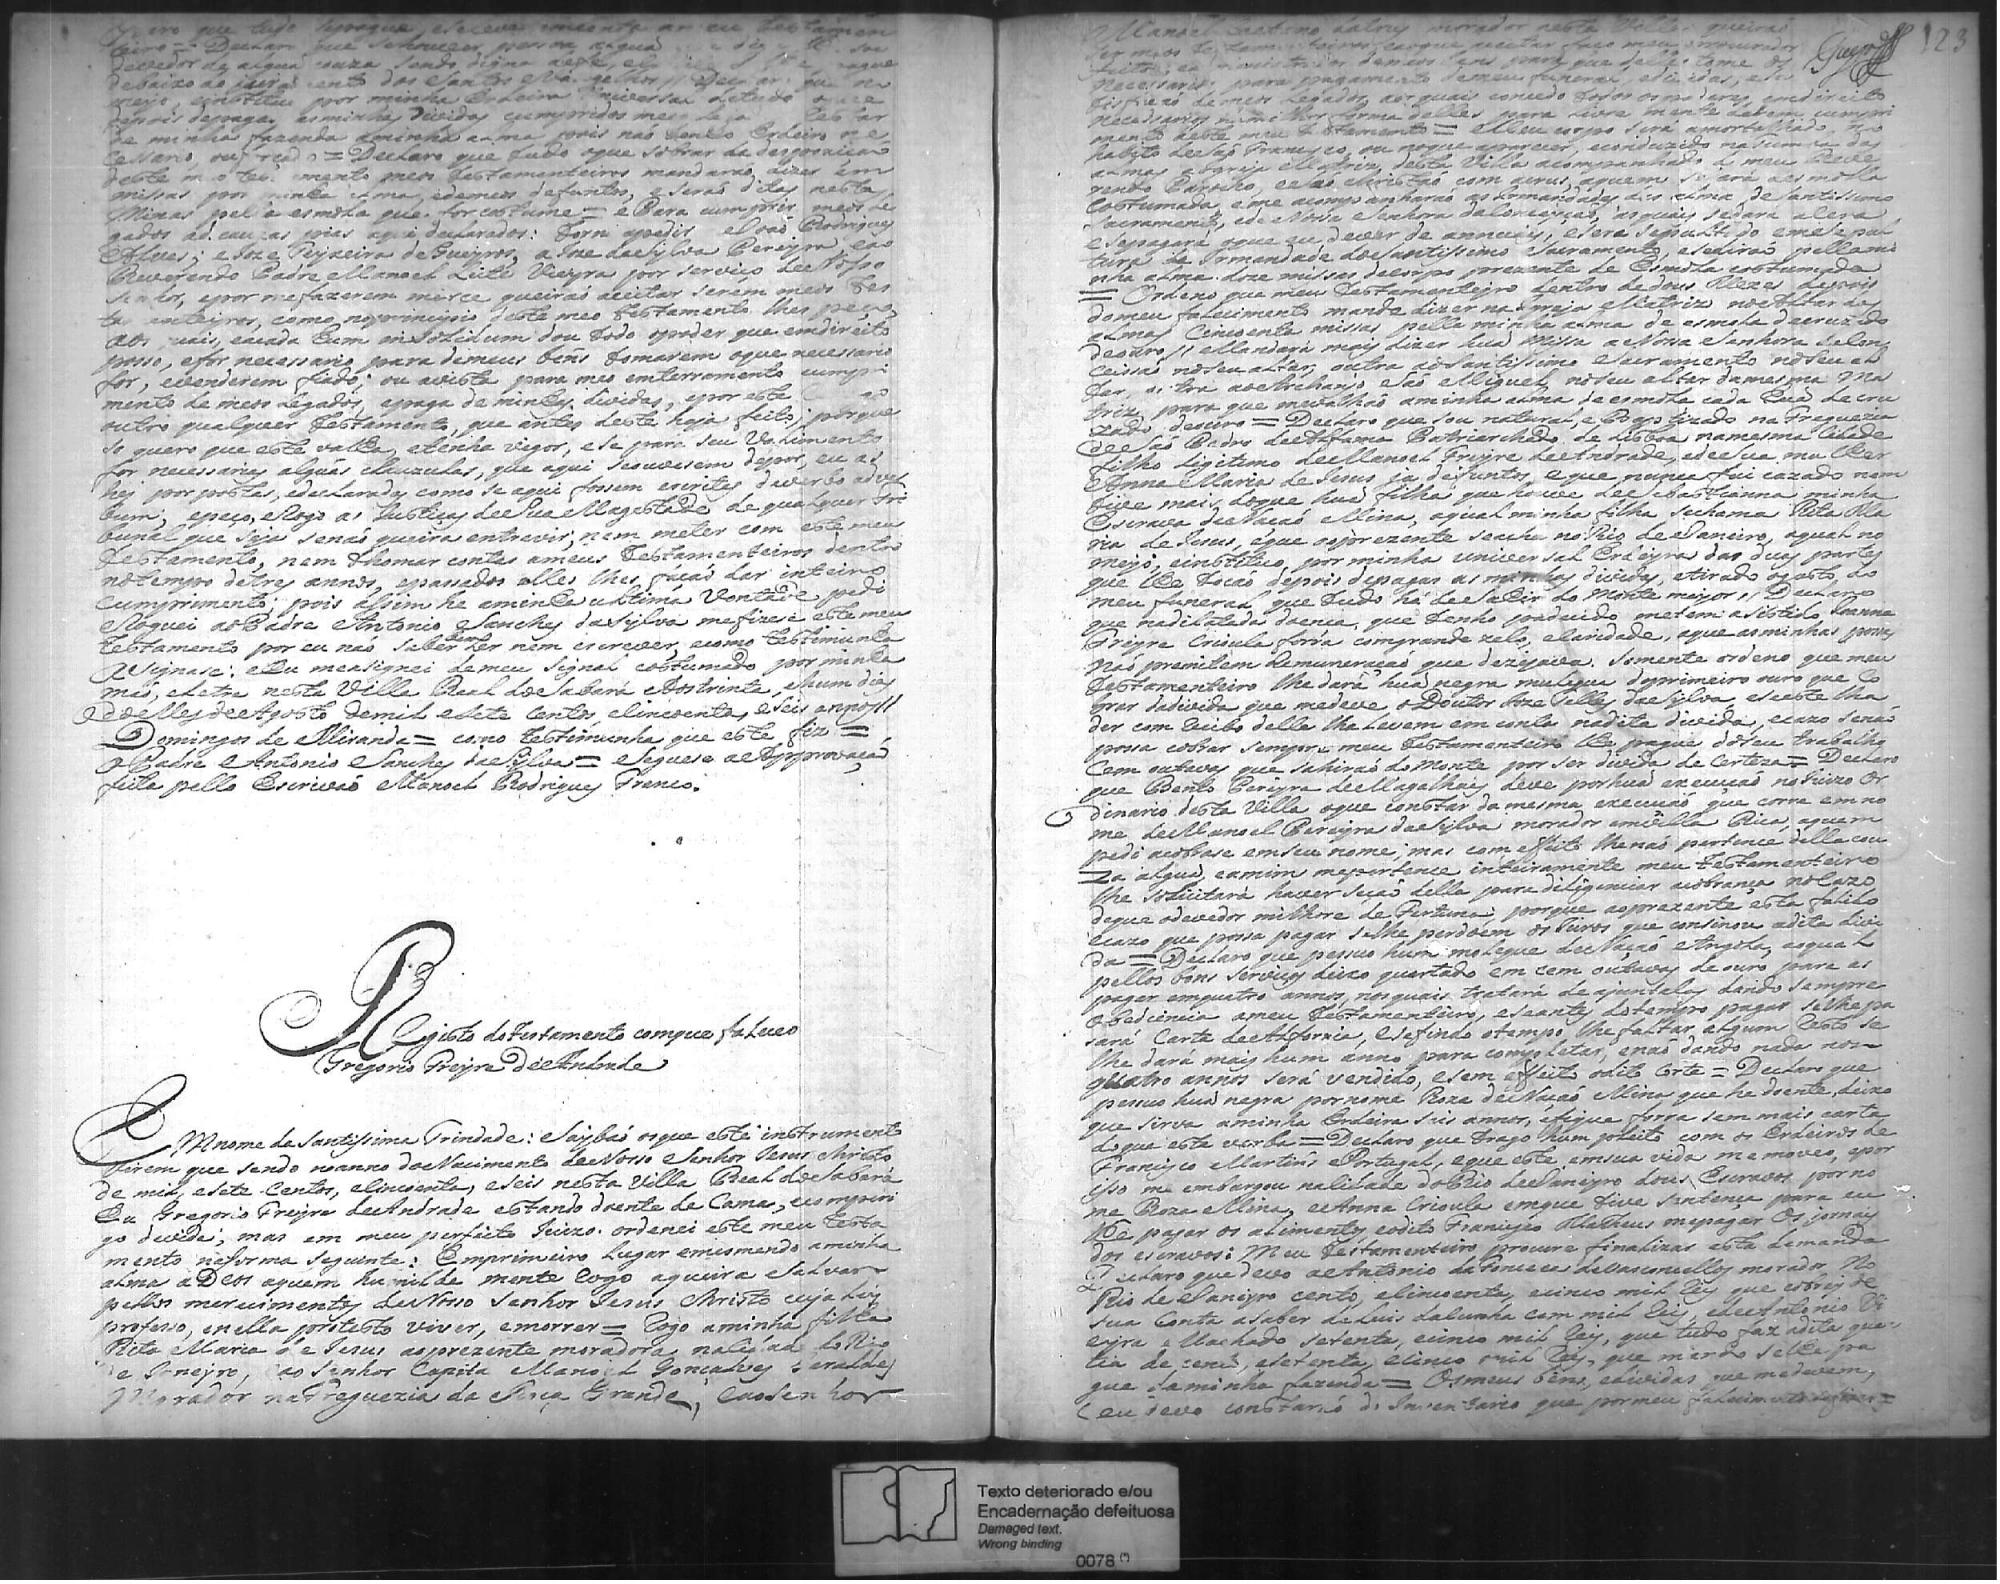 que tudo se pague
teiro = Declaro que se houver pessoa algua
devedor de algua couza sendo digna de fé,
debaixo do juramento dos Santos Evangelhos // Declaro que no
meyo, e instituo por minha Erdeira Universal de tudo o que
depois de pagas as minhas dividas cumpridos meos legados restar
de minha fazenda a minha alma pois não tenho Erdeiro ne
cessario, ou forçado = Declaro que tudo o que sobrar da despozição
deste meo testamento meos testamenteiros mandarão dizer em
missas por minha alma, e de meos defuntos, e serão ditas nesta
Minas pella esmola que for costume = e Para cumprir meos le
gados ás cauzas pias aqui declaradas: torno a pedir a João Rodrigues
Alves; e Joze Teyxeira de Queyros, a Joze da Sylva Pereyra, e ao
Reverendo Padre Manoel Leite Vieyra por serviço de Nosso
Senhor, e por me fazerem merce queirão aceitar serem meos tes
tamenteyros, como no principio deste meo testamento lhes peço
aos quais, e a cada hum in solidum dou todo o poder que em direito
posso, e for necessario para de meus bens tomarem o que necessario
for, e venderem fiado, ou a vista para meo enterramento cumpri
mento de meos legados, e paga de minhas dividas, e por este
outro qualquer testamento, que antes deste haja feito; porque
so quero que este valha, e tenha vigor, e se para seu Valimento
for necessarias algũas clauzulas, que aqui se ouvesem depor, eu as
hei por postas, e declaradas como se aqui fossem escritas de verbo ad ver
bum; e peço, e Rogo as Justiças de Sua Magestade de qualquer tri
bunal que seja senão queira entrevir, nem meter com este meu
Testamento, nem thomar contas a meus Testamenteiros dentro
no tempo de tres annos, e passados elles lhes fação dar inteiro
cumprimento; pois assim he a minha ultima Vontade pedi
e Roguei ao Padre Antonio Sanches da Sylva me fizese este meu
testamento por eu não saber ler nem escrever, e como testimunha
asignase: e Eu me asignei de meu signal costumado por minha
mão, e letra nesta Villa Real do Sabará aos trinta, e hum dias
do Mes de Agosto de mil e sete centos, e sincoenta, e seis annos //
Domingos de Miranda = como testimunha que este fiz =
O Padre Antonio Sanches da Sylva = Seguese a Approvação
feita pello Escrivão Manoel Rodrigues Franco.
Registo do testamento com que faleceo
Gregorio Freyre De Andrade
Em nome da Santissima Trindade: Saybão os que este instrumento
virem que sendo no anno do Nacimento de Nosso Senhor Jesus Christo
de mil, e sete Centos, e sincoenta, e seis nesta Villa Real do Sabará
Eu Gregorio Freyre de Andrade estando doente de Cama, e com peri
go de vida; mas em meu perfeito Juizo. ordenei este meu testa
mento na forma seguinte: Em primeiro Lugar emcomendo a minha
alma a Deos a quem humilde mente Rogo a queira Salvar
pellos merecimentos de Nosso Senhor Jesus Christo cuja Ley
professo, e nella protesto viver, e morrer = Rogo a minha filha
Rita Maria de Jesus ao prezente moradora na Cidade do Rio
de Janeyro, e ao Senhor Capitam Manoel Gonçalves Geraldes
Morador na Freguezia da Roça Grande, e ao Senhor
123
Manoel Caetano morador nesta Villa queirão
ser meos testamenteiros, aos que aceitar faço meu procurador
feitor, e administrador de meus bens para que delles tome os
necessarios para pagamento de meu funeral, e dividas, e sa
tisfação de meos Legados, aos quais concedo todos os poderes em direito
necessarios na melhor forma delles para livre mente darem cumpri
mento deste meu testamento = Meu corpo será amortalhado, no
habito de São Francisco, ou no que aparecer, e conduzido na tumba das
almas a Igreja Matriz desta Villa acompanhado do meu Reve
rendo Parocho, e Sacristão com a crus, a quem se dará a esmolla
costumada, e me acompanharão as Irmandades das almas, do Santissimo
Sacramento, e de Nossa Senhora da Conceição, as quais se dará a cera
e se pagará o que eu dever de annuais, e será sepultado em a sepul
tura da Irmandade do Santissimo Sacramento, e se dirão pella mi
nha alma doze missas de corpo prezente de Esmola costumada
= Ordeno que meu testamenteyro dentro de dous Mezes depois
do meu falecimento mande dizer na Igreja Matriz no Altar das
almas Cincoenta missas pella minha alma de esmola de cruzado
de ouro // Mandará mais dizer hua Missa a Nossa Senhora da Con
ceissão no seu altar, outra ao Santissimo Sacramento no seu al
tar, outra ao Archanjo São Miguel, no seu altar da mesma Ma
triz, para que me valhão a minha alma de esmola cada hua de cru
zado, de ouro = Declaro que sou natural, e Baptizado na Freguezia
de São Pedro de Alfama Patriarchado de Lisboa na mesma Cidade
filho Ligitimo de Manoel Freyre de Andrade, e de sua mulher
Anna Maria de Jesus ja defuntos, e que nunca fui cazado nem
tive mais do que hua filha que houve de Sebastianna minha
Escrava de Nação Mina, a qual minha filha se chama Rita Ma
ria de Jesus, e que ao prezente se acha no Rio de Janeiro, a qual no
meyo, e instituo, por minha univerсal Erdeyra das duas partes
que lhe tocão depois de pagas as minhas dividas, e tirado o gasto do
meu funeral que tudo há de Sahir do Monte mayor // Declaro
que na dilatada doença, que tenho padecido me tem asistido Joanna
Freyre Crioula forra com grande zelo, e Caridade, a que as minhas posses
não premitem Remuneração que dezejava. Somente ordeno que meu
testamenteiro lhe dará hua negra muleque do primeiro ouro que Co
brar da divida que me deve o Doutor Joze Telles da Sylva, e se este lha
der com Recibo della lha Levem em conta na dita divida, e cazo senão
possa cobrar sempre meu testamenteiro lhe pague do seu trabalho
Cem outavas que sahirão do Monte por ser divida de Certeza = Declaro
que Bento Pereyra de Magalhais deve por hua execução no Juizo Or
dinario desta Villa o que constar da mesma execução que corre em no
me de Manoel Pereyra da Sylva morador em Villa Rica, a quem
pedi a cobrase em seu nome; mas com effeito lhe não pertence della cou
za algua, e a mim me pertence inteiramente meu testamenteiro
lhe solicitará haver seção della para diligenciar a cobrança no Cazo
de que o devedor milhore de Fortuna, porque ao prezente está falido
e cazo que possa pagar se lhe perdoem os Juros que consinou a dita divi
da = Declaro que possuo hum moleque de Nação Angola, o qual
pellos bons serviços deixo quartado em cem outavas de ouro para as
pagar em quatro annos, nos quais tratará de ajuntalas dando sempre
obediencia a meu testamenteiro, e se antes do tempo pagar se lhe pa
sará Carta de Alforria, e se findo o tempo lhe faltar algum Resto se
lhe dará mais hum anno para completar, e não dando nada nos
quatro annos será vendido, e sem effeito o dito Corte = Declaro que
possuo hua negra por nome Roza de Nação Mina que he doente, deixo
que sirva a minha Erdeira seis annos, e fique forra sem mais carta
do que esta verba = Declaro que trago hum pleito com os Erdeiros de
Francisco Martins Portugal, e que este em sua vida me moveo, e por
isso me embargou na Cidade do Rio de Janeyro dous Escravos por no
me Roza Mina, e Anna Crioula em que tive sentença para eu
lhe pagar os alimentos, e o dito Francisco Matheus me pagar Os jornays
dos escravos: Meu testamenteiro procure finalizar esta demanda
Declaro que devo a Antonio da Fonseca de Vasconcellos morador No
Rio de Janeyro cento, e sincoenta, e cinco mil Reys que cobrey de
sua Conta a saber de Luis da Cunha cem mil Reys, e de Antonio Vi
eyra Machado setenta, e cinco mil Reys, que tudo faz a dita quan
tia de cento, e setenta, e cinco mil Reys, que mando se lhe pa
gue da minha fazenda = Os meus bens, e dividas que me devem,
e eu devo constarão do Inventario que por meu falecimento se fizer =
Texto deteriorado e/ou
Encadernação defeituosa
Damaged text.
Wrong binding
0078 (*)